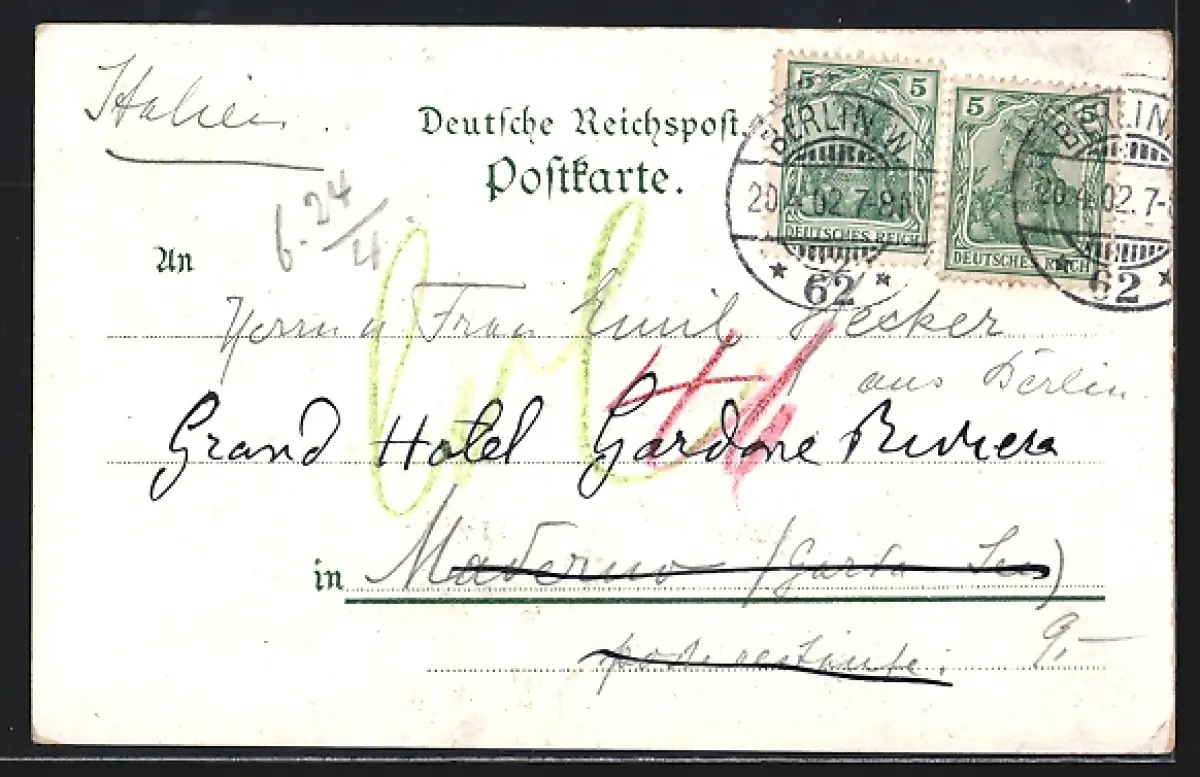 Italien.
Deutsche Reichspost.
Postkarte.
5 5
DEUTSCHES REICH
5 5
DEUTSCHES REICH
BERLIN W
20.4.02.7-8N
* 62 *
BERLIN
20.4.02.7-
* 62 *
24/4
An
Herrn u Frau Emil Hecker
aus Berlin
Grand Hotel Gardone Riviera
in Maderno (Garda See)
poste restante.
9,-